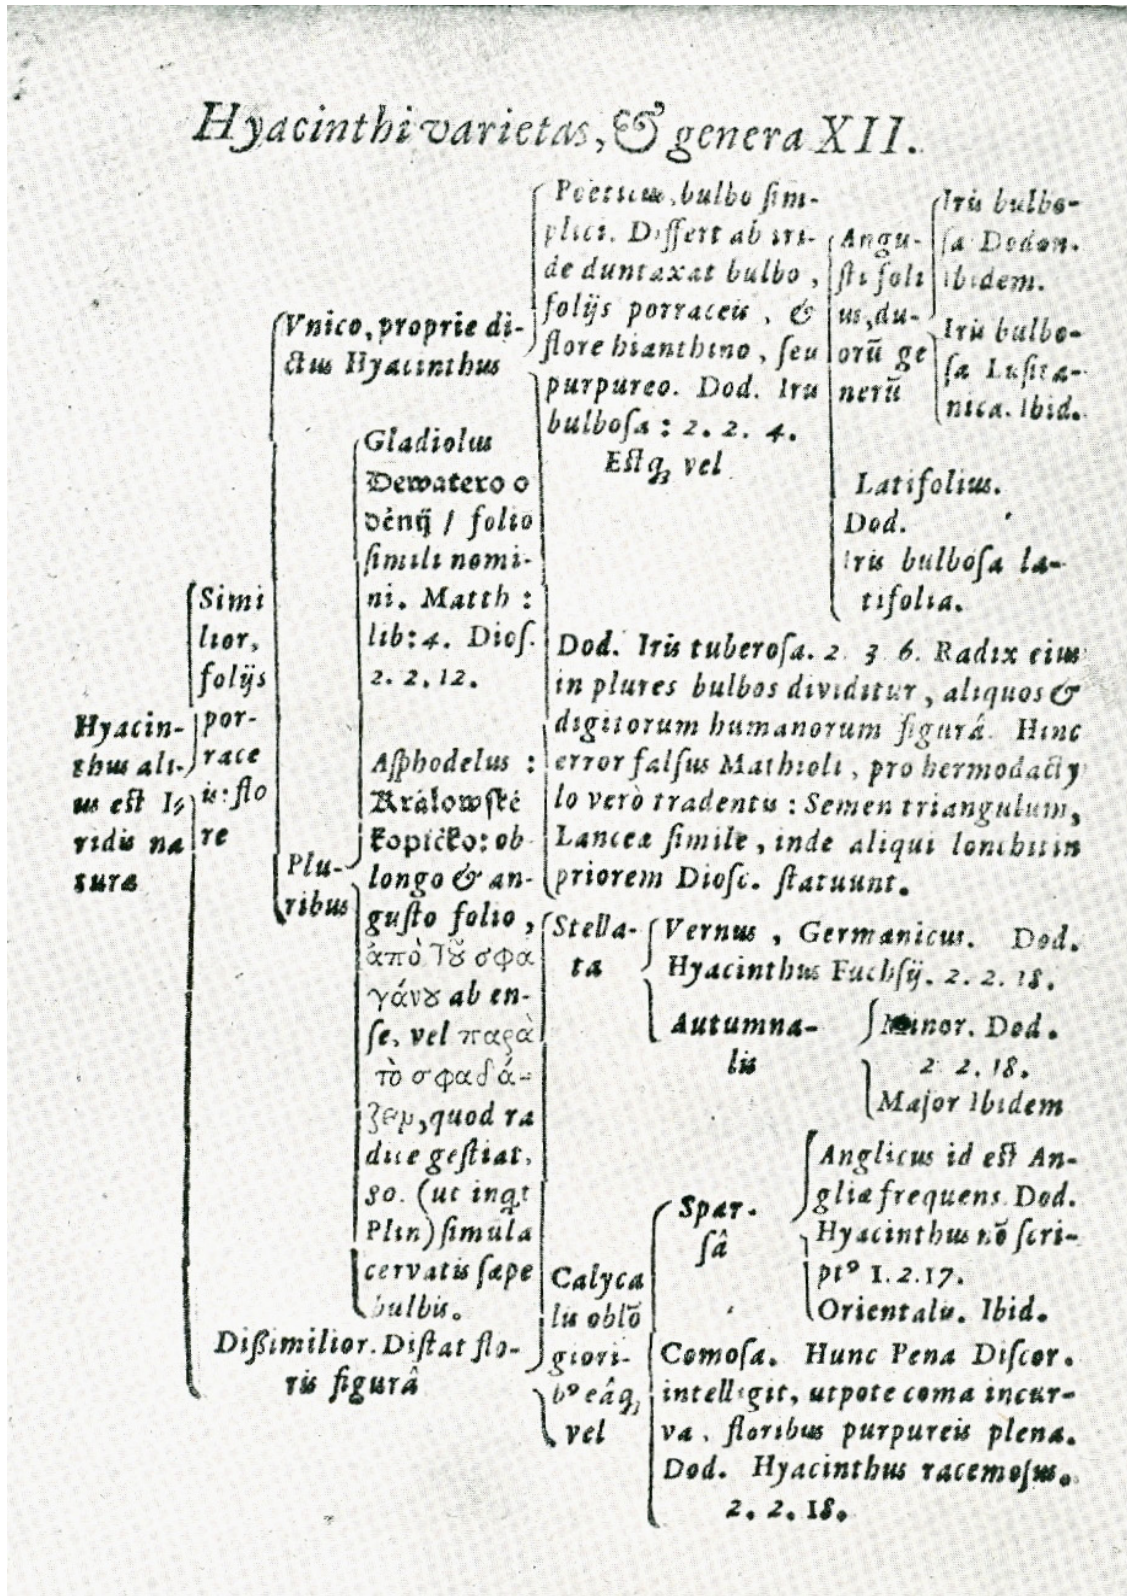 Hyacinthi varietas, & genera XII.
Hyacin-
thus ali-
us est I-
ridis na
turæ
Simi
lior,
folijs
por-
race
is: flo
re
Vnico, proprie di-
ctus Hyacinthus
Poeticus, bulbo sim-
plici. Differt ab iri-
de duntaxat bulbo,
folijs porraceis, &
flore hianthino, seu
purpureo. Dod. Iris
bulbosa: 2. 2. 4.
Estq; vel
Angu-
sti foli
us, du-
orū ge
nerū
Iris bulbo-
sa Dodon.
Ibidem.
Iris bulbo-
sa Lusita-
nica. Ibid.
Latifolius.
Dod.
Iris bulbosa la-
tifolia.
Plu-
ribus
Gladiolus
Dewatero o
děnij / folio
simili nomi-
ni. Matth:
lib: 4. Diosc.
2. 2. 12.
Asphodelus:
Králowské
kopičko: ob-
longo & an-
gusto folio,
ἀπὸ τοῦ σφα
γάνου ab en-
se, vel παρὰ
τὸ σφαδά-
ζειν, quod ra
dice gestiat,
80. (ut inqt
Plin) simul a
cervatis sæpe
bulbis.
Dod. Iris tuberosa. 2. 3. 6. Radix eius
in plures bulbos dividitur, aliquos &
digitorum humanorum figurâ. Hinc
error falsus Mathioli, pro hermodacty
lo verò tradentis: Semen triangulum,
Lanceæ simile, inde aliqui lonchitin
priorem Diosc. statuunt.
Dißimilior. Distat flo-
ris figurâ
Stella-
ta
Vernus, Germanicus. Dod.
Hyacinthus Fuchsij. 2. 2. 18.
Autumna-
lis
Minor. Dod.
2. 2. 18.
Major Ibidem
Calyca
lis oblō
giori-
b⁹ eâq;
vel
Spar-
sâ
Anglicus id est An-
gliæ frequens. Dod.
Hyacinthus nō scri-
pt⁹ 1. 2. 17.
Orientalis. Ibid.
Comosa. Hunc Pena Discor.
intelligit, utpote coma incur-
va, floribus purpureis plena.
Dod. Hyacinthus racemosus.
2. 2. 18.